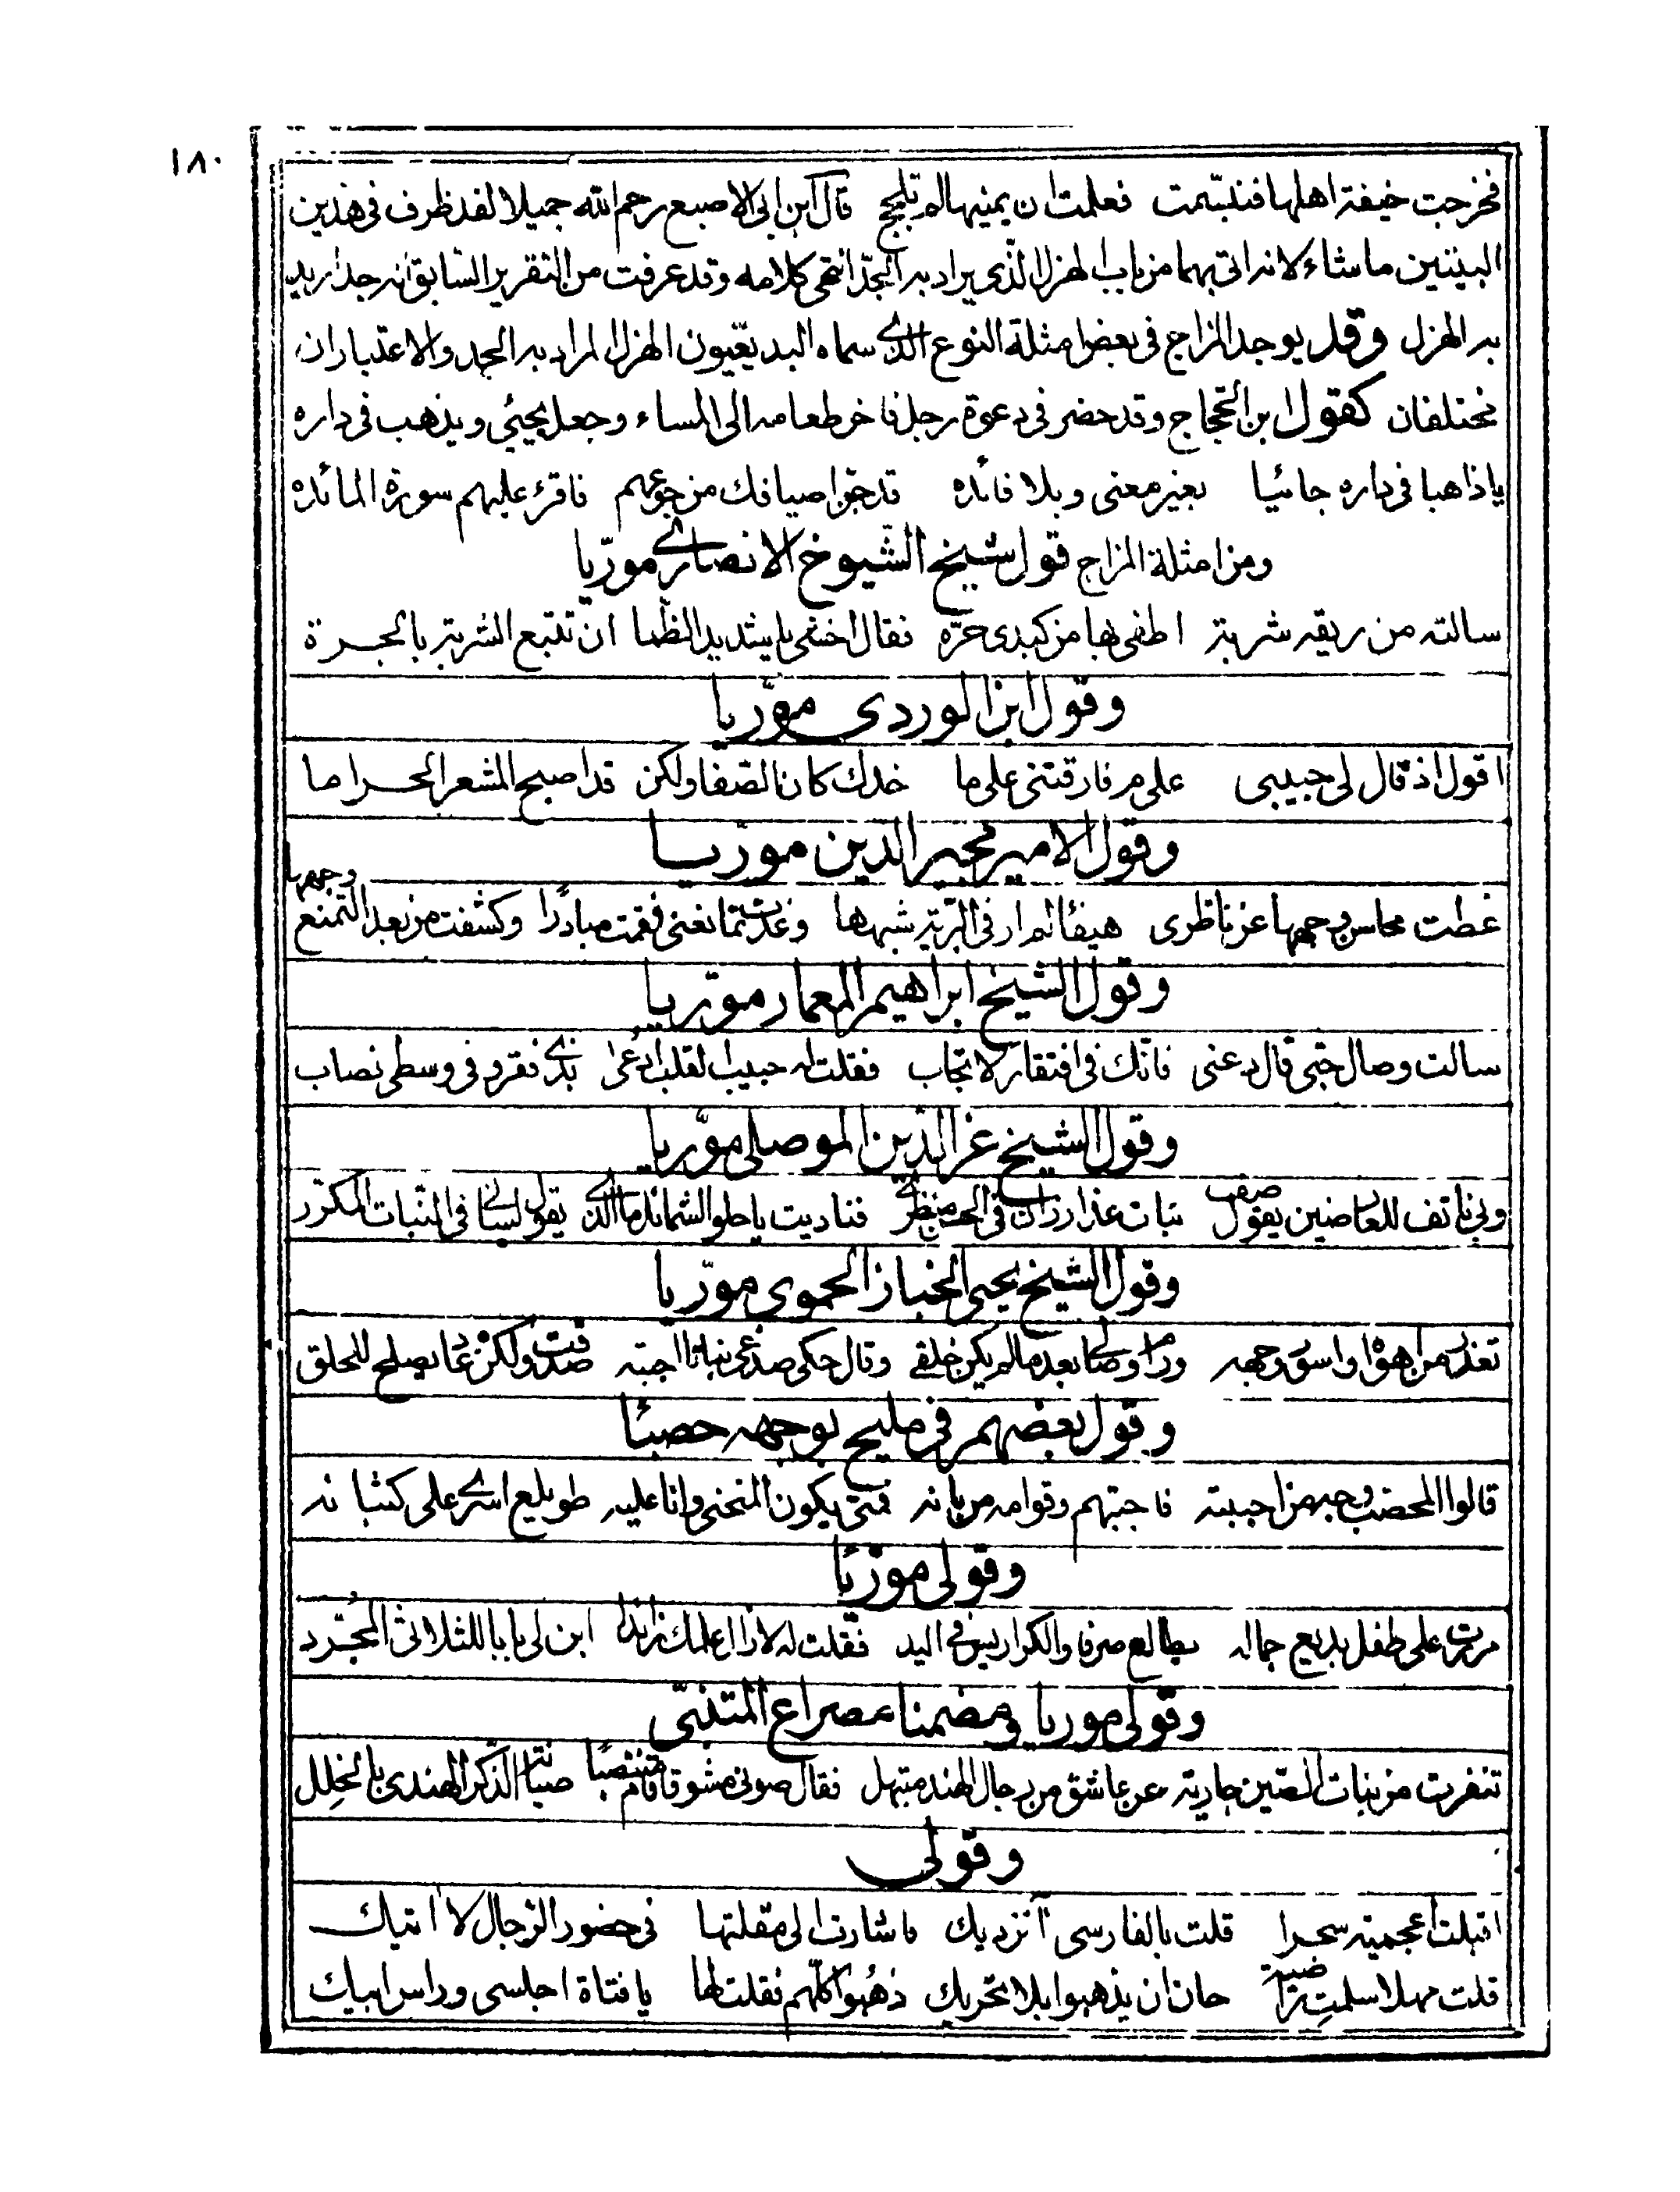 ١٨٠
فخرجت خيفة اهلها فتبسّمت فعلمت ان يمينها لم تلجج قال ابن ابي الاصبع رحم الله جميلا لقد ظرف في هذين
البيتين ما شاء لانه اتى بهما من باب الهزل الّذي يراد به الجدّ انتهى كلامه وقد عرفت من التقرير السّابق انه جد اريد
به الهزل وقد يوجد المزاج في بعض امثلة النوع الذي سماه البديعّيون الهزل المراد به الجد والاعتباران
مختلفان كقول ابن الحّجاج وقد حضر في دعوة رجل فاخر طعامه الى المساء وجعل يجيئ ويذهب في داره
يا ذاهبا في داره جائيا بغير معنى وبلا فائده قد جنّ اضيافك من جوعهم فاقرء عليهم سورة المائده
ومن امثلة المزاج قول شيخ الشّيوخ الانصاري مورّيا
سالته من ريقه شربة اطفي بها من كبدي حرّه فقال اخشى يا شديد الظّما ان تتبع الشربة بالجرة
وقول ابن الوردي مورّيا
اقول اذ قال لي حبيبي على م فارقتني على ما خدك كان الصّفا ولكن قد اصبح المشعر الحراما
وقول الامير مجير الدّين مورّيا
غطت محاسن وجهها عن ناظري هيفا لم ار في البريّة شبهها وغدت تمانعني فقمت مبادرًا وكشفت من بعد التمنع وجهها
وقول الشيخ ابراهيم المعمار مورّيا
سالت وصال حبّي قال دعني فانّك ذي افتقار لا تجاب فقلت له حبيب القلب ادعى بذي فقر وفي وسطي نصاب
وقول الشيخ عز الدّين الموصلي مورّيا
نبات عذار زان في الحسن منظري فناديت يا حلو الشمائل ما الذي يقول لساني في النّبات المكرّر
وقول الشيخ يحيى الخباز الحموي مورّيا
تعذر من اهوى واسود وجهه ورام وصالي بعد ما لم يكن خلقي وقال حكى صدغي نباتا اجبته صدقت ولكن عاد يصلح للحلق
وقول بعضهم في مليح بوجهه حصبًا
قالوا المحصب وجه من احببته فاجبتهم وقوامه من بانه فمتى يكون المنحنى وانا عليه طويلع اسري على كثبانه
وقولي مورّيًا
مررت على طفل بديع جماله يطالع صرفا والكراريس في اليد فقلت له لا زال علمك زائدا ابن لي بابا للثلاثي المجّرد
وقولي موريا ومضمنا مصراع المتنبّي
تنفرت من بنات الصّين جارية عن عاشق من رجال الهند مبتهل فقال صوني مشوقا قام منتصبًا صيانة الذّكر الهندي بالخلل
وقولي
اقبلت اعجمية سحرا قلت بالفارسي آنزديك فاشارت الي مقلتها في حضور الرّجال لا اتيك
قلت مهلا سلمت حان ان يذهبوا بلا تحريك ذهبوا كلّهم فقلت لها يا فتاة اجلسي وراس ابيك